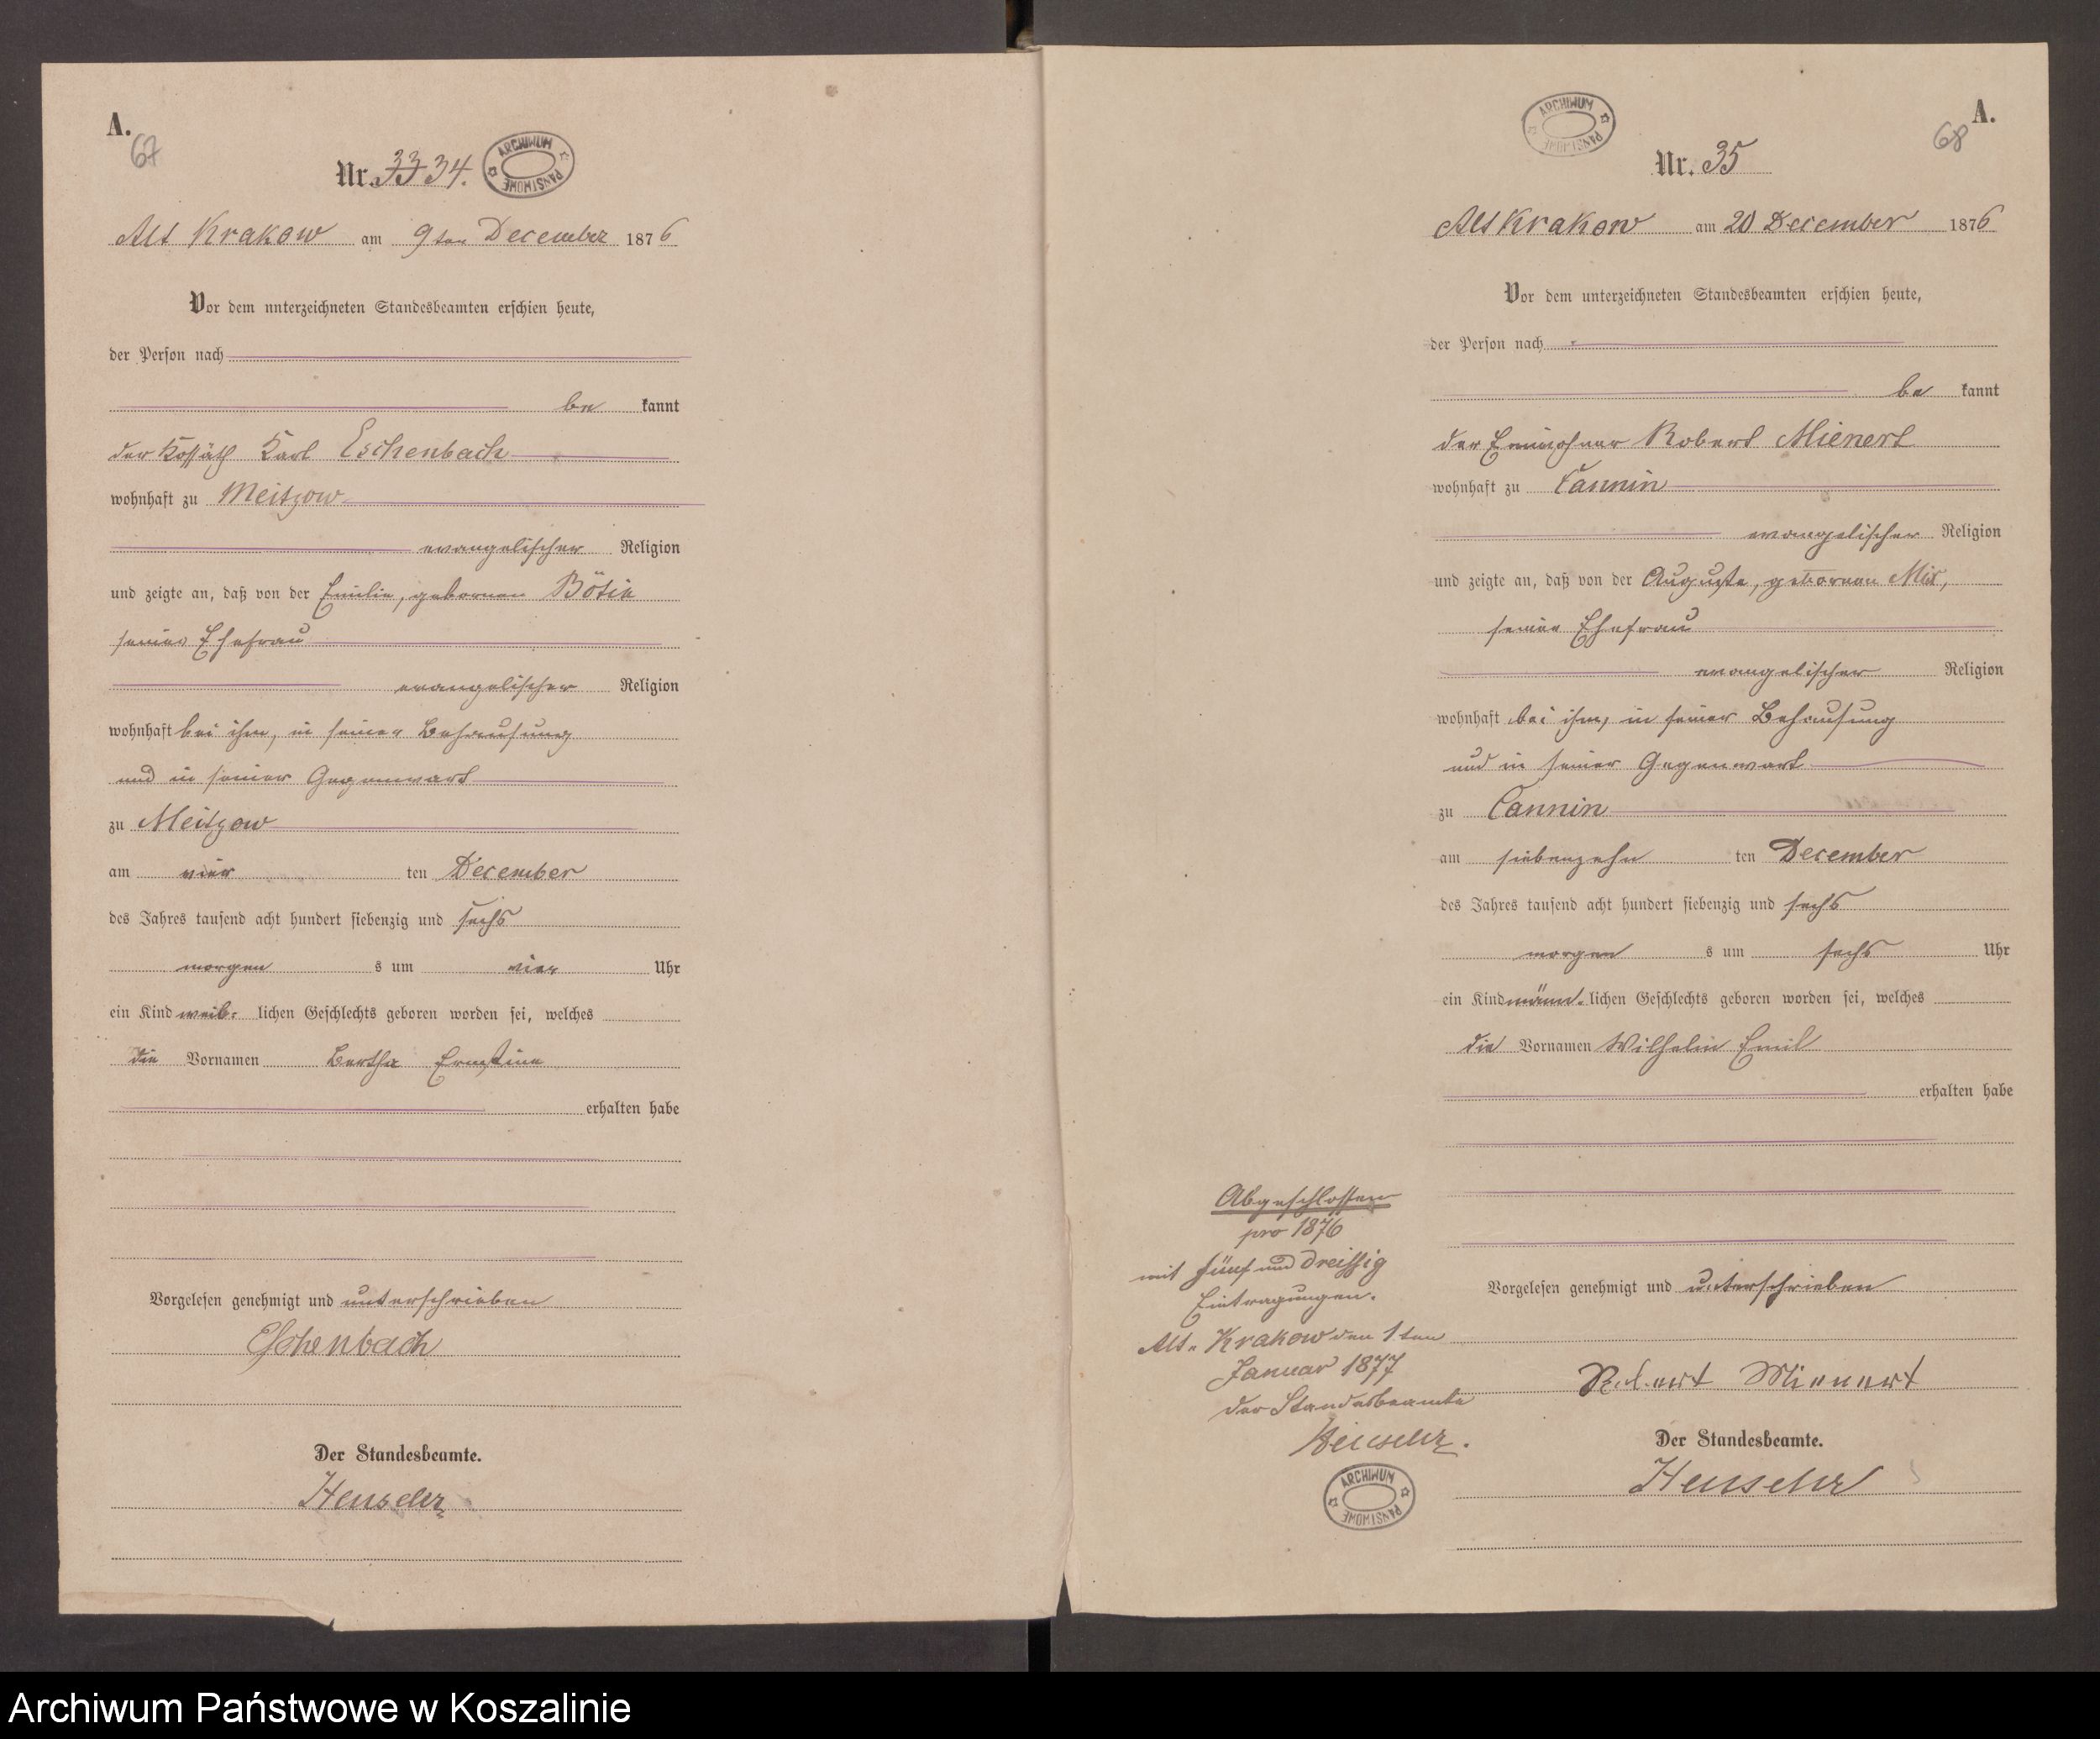 A.
67
Nr. 33 34.
ARCHIWUM PAŃSTWOWE
Alt Krakow am 9ten December 1876
Vor dem unterzeichneten Standesbeamten erschien heute,
der Person nach
be kannt
der Kossäth Karl Eschenbach
wohnhaft zu Meitzow
evangelischer Religion
und zeigte an, daß von der Emilie, gebornen
seiner Ehefrau
evangelischer Religion
wohnhaft bei ihm, in seiner Behausung
und in seiner Gegenwart
zu Meitzow
am vier ten December
des Jahres tausend acht hundert siebenzig und sechs
morgen s um vier Uhr
ein Kind weib- lichen Geschlechts geboren worden sei, welches
die Vornamen Bertha Ernstine
erhalten habe
Vorgelesen genehmigt und unterschrieben
Eschenbach
Der Standesbeamte.
ARCHIWUM PAŃSTWOWE
A.
68
Nr. 35
Alt Krakow am 20 December 1876
Vor dem unterzeichneten Standesbeamten erschien heute,
der Person nach
be kannt
der Einwohner Robert Mienert
wohnhaft zu Cannin
evangelischer Religion
und zeigte an, daß von der Auguste, gebornen Mix,
seiner Ehefrau
evangelischer Religion
wohnhaft bei ihm, in seiner Behausung
und in seiner Gegenwart
zu Cannin
am siebenzehn ten December
des Jahres tausend acht hundert siebenzig und sechs
morgen s um sechs Uhr
ein Kind männ- lichen Geschlechts geboren worden sei, welches
die Vornamen Wilhelm Emil
erhalten habe
Vorgelesen genehmigt und unterschrieben
Robert Mienert
Der Standesbeamte.
Abgeschlossen
pro 1876
mit fünf und dreissig
Eintragungen.
Alt-Krakow den 1ten
Januar 1877
der Standesbeamte
ARCHIWUM PAŃSTWOWE
Archiwum Państwowe w Koszalinie